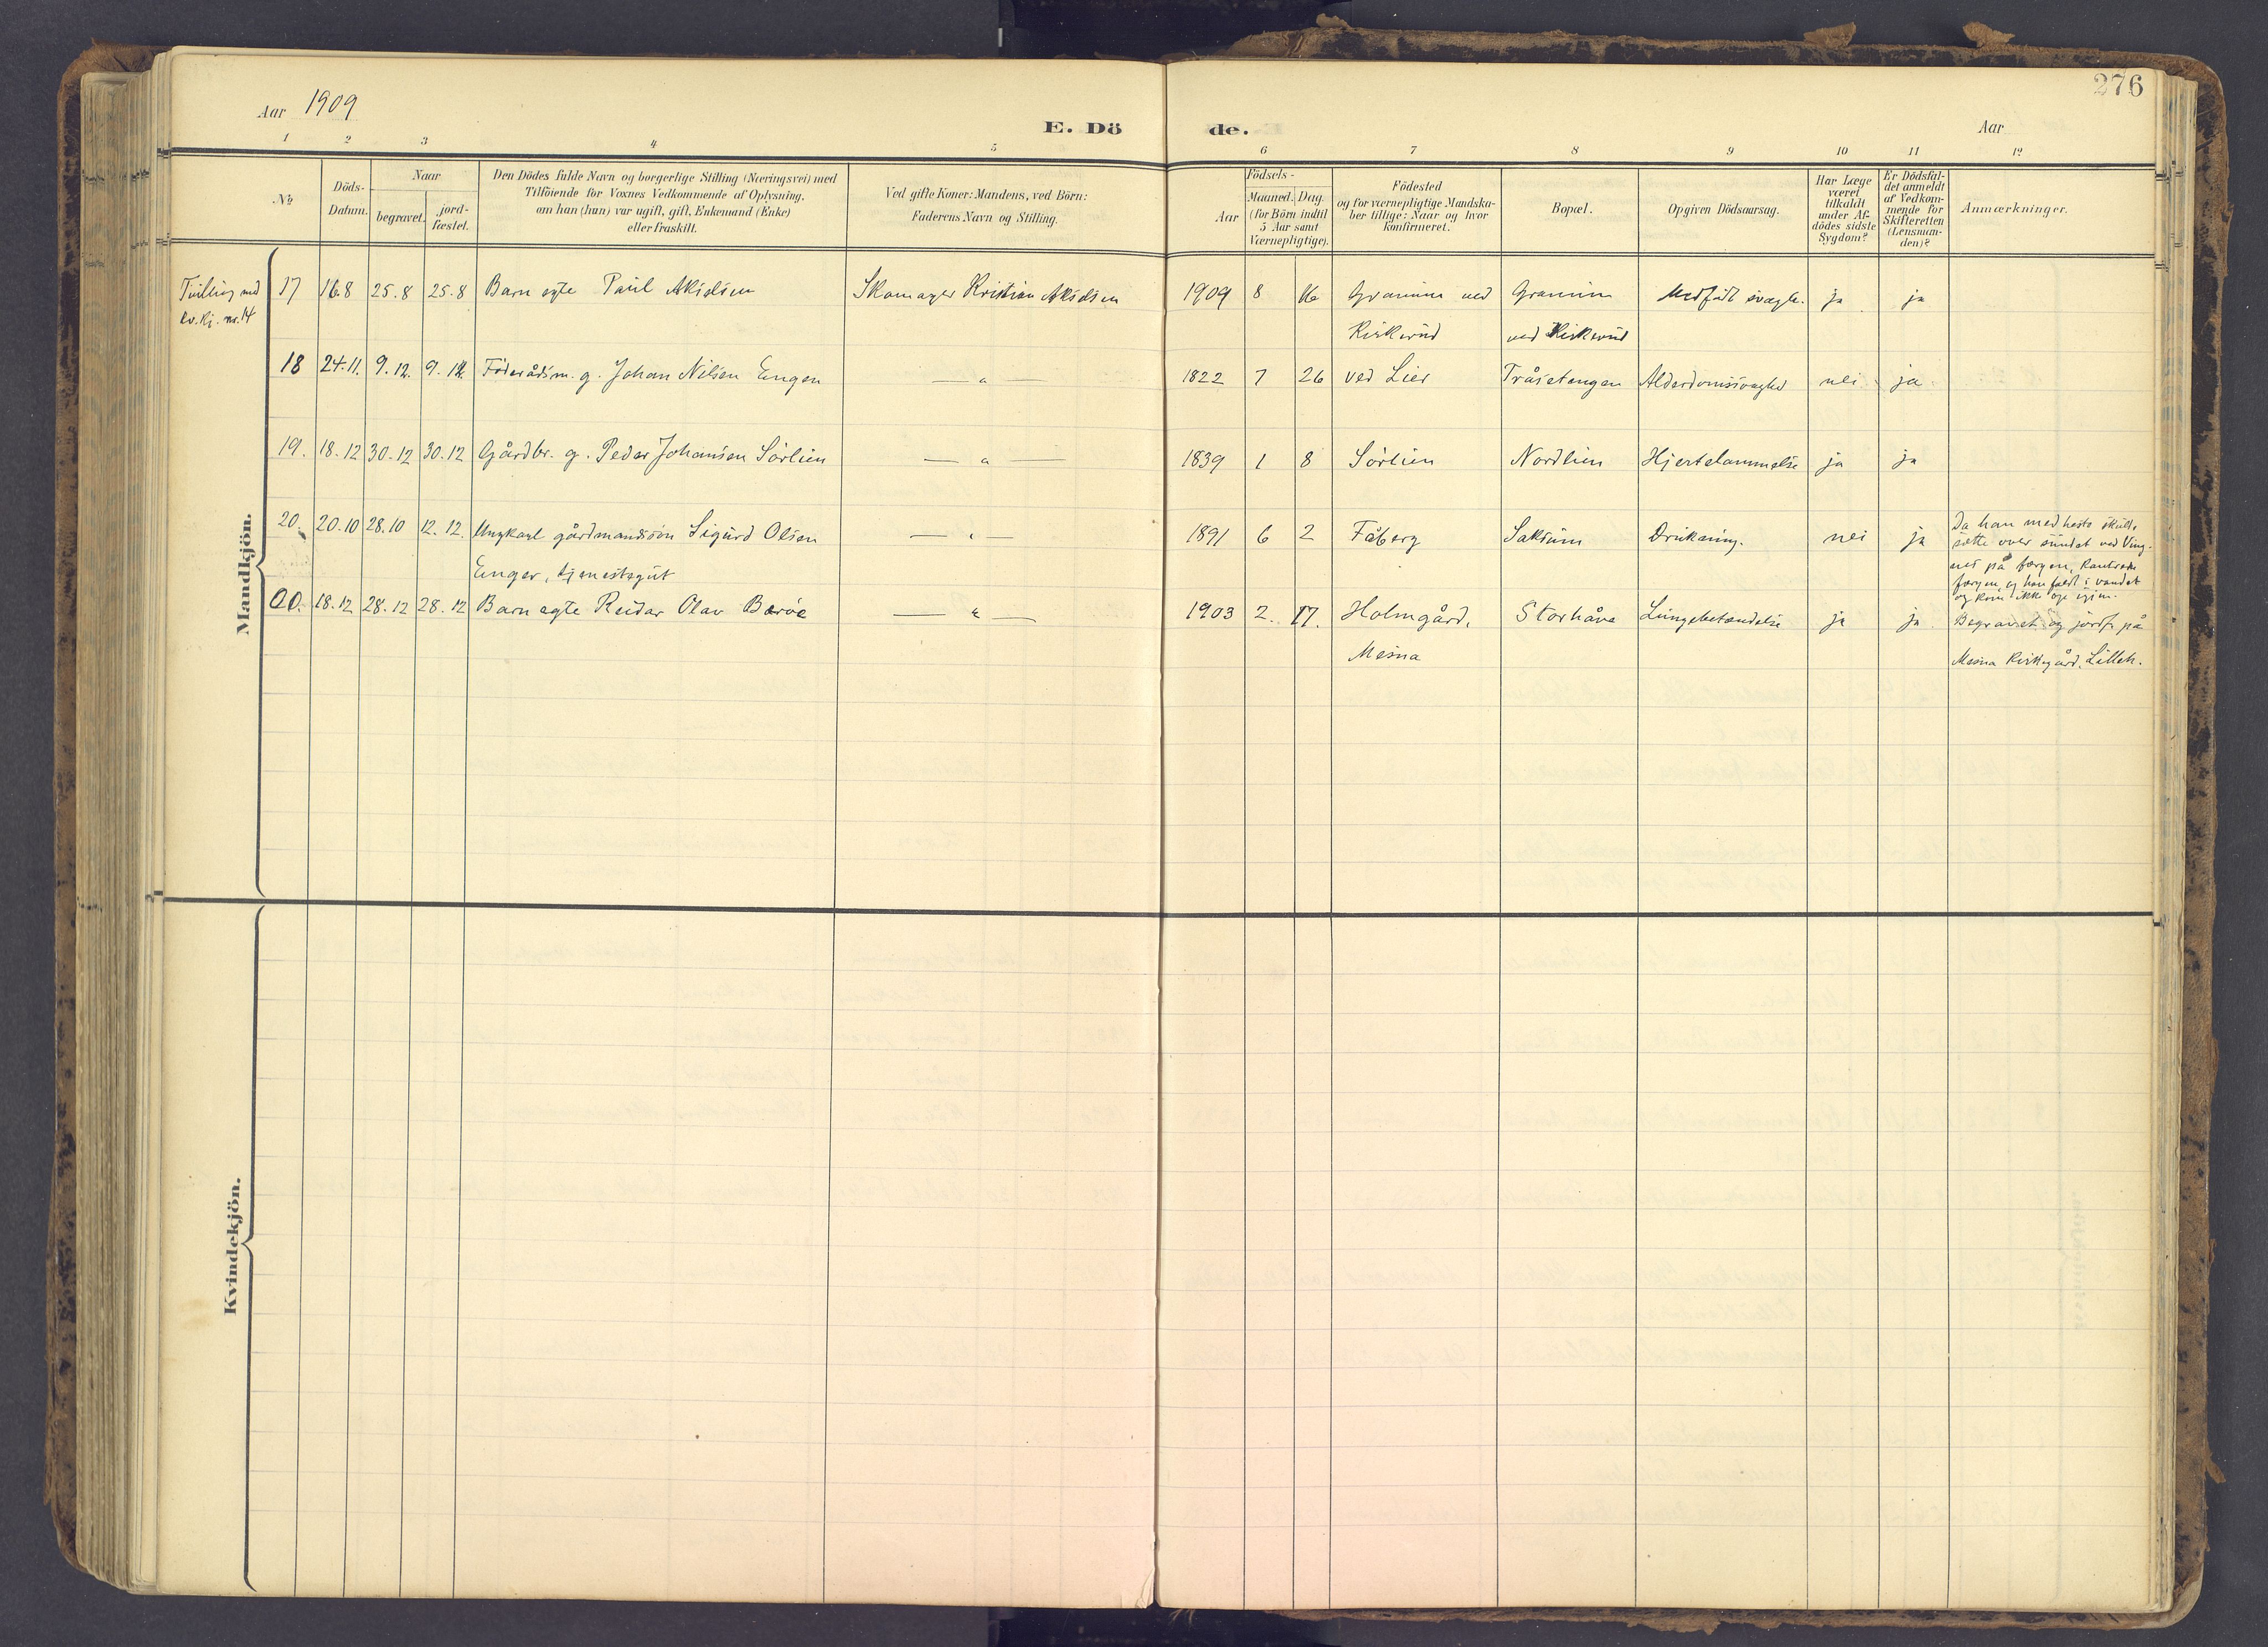 276
Aar 1909
E. Dö
de.
Aar
1 2 3 4 5 6 7 8 9 10 11 12
№
Döds-
Datum.
Naar
begravet.
jord-
fæstet.
Den Dödes fulde Navn og borgerlige Stilling (Næringsvei) med
Tilföiende for Voxnes Vedkommende af Oplysning,
om han (hun) var ugift, gift, Enkemand (Enke)
eller fraskilt.
Ved gifte Koner: Mandens, ved Börn:
Faderens Navn og Stilling.
Födsels-
Aar
Maaned. Dag.
(for Börn indtil
5 Aar samt
Værnepligtige).
Födested
og for værnepligtige Mandska-
ber tillige: Naar og hvor
konfirmeret.
Bopæl.
Opgiven Dödsaarsag.
Har Læge
været
tilkaldt
under Af-
dödes sidste
Sygdom?
Er Dödsfal-
det anmeldt
af Vedkom-
mende for
Skifteretten
(Lensman-
den)?
Anmærkninger.
Mandkjön.
Tvilling med
kv.kj. nr. 14
17 16.8 25.8 25.8 Barn egte Paul Akselsen Skomager Kristian Akselsen 1909 8 16 Gramum ved Gramum Medfødt svagh. ja ja
Kirkerud ved Kirkerud
18 24.11. 9.12. 9.12. Föderådsm. g. Johan Nilsen Engen — " — 1822 7 26 ved Lier Tråsetengen Alderdomssvaghed nei ja
19. 18.12 30.12 30.12 Gårdbr. g. Peder Johansen Sörlien — " — 1839 1 8 Sörlien Nordlien Hjertelammelse ja ja
20. 20.10 28.10 12.12. Ungkarl gårdmandssön Sigurd Olsen — " — 1891 6 2 Fåberg Saksum Drukning. nei ja
Enger, tjenestegut
Da han med hest skulde
sætte over sundet ved Ving-
nes på færgen, kantrede
færgen og han faldt i vandet
og kom ikke op igjen.
00. 18.12 28.12 28.12 Barn egte Reidar Olav Baröe — " — 1903 2. 17. Holmgård, Storhåve Lungebetændelse ja ja Begravet og jordf. på
Mesna Mesna Kirkegård, Lilleh.
Kvindekjön.